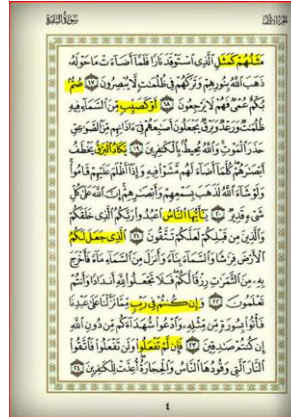 سورة البقرة الجزء الأول
مَثَلُهُمْ كَمَثَلِ الَّذِي اسْتَوْقَدَ نَارًا فَلَمَّا أَضَاءَتْ مَا حَوْلَهُ
ذَهَبَ اللَّهُ بِنُورِهِمْ وَتَرَكَهُمْ فِي ظُلُمَٰتٍ لَّا يُبْصِرُونَ ١٧ صُمٌّ
بُكْمٌ عُمْيٌ فَهُمْ لَا يَرْجِعُونَ ١٨ أَوْ كَصَيِّبٍ مِّنَ السَّمَاءِ فِيهِ
ظُلُمَٰتٌ وَرَعْدٌ وَبَرْقٌ يَجْعَلُونَ أَصَٰبِعَهُمْ فِي ءَاذَانِهِم مِّنَ الصَّوَٰعِقِ
حَذَرَ الْمَوْتِ وَاللَّهُ مُحِيطٌ بِالْكَٰفِرِينَ ١٩ يَكَادُ الْبَرْقُ يَخْطَفُ
أَبْصَٰرَهُمْ كُلَّمَا أَضَاءَ لَهُم مَّشَوْا فِيهِ وَإِذَا أَظْلَمَ عَلَيْهِمْ قَامُوا
وَلَوْ شَاءَ اللَّهُ لَذَهَبَ بِسَمْعِهِمْ وَأَبْصَٰرِهِمْ إِنَّ اللَّهَ عَلَىٰ كُلِّ
شَيْءٍ قَدِيرٌ ٢٠ يَٰأَيُّهَا النَّاسُ اعْبُدُوا رَبَّكُمُ الَّذِي خَلَقَكُمْ
وَالَّذِينَ مِن قَبْلِكُمْ لَعَلَّكُمْ تَتَّقُونَ ٢١ الَّذِي جَعَلَ لَكُمُ
الْأَرْضَ فِرَٰشًا وَالسَّمَاءَ بِنَاءً وَأَنزَلَ مِنَ السَّمَاءِ مَاءً فَأَخْرَجَ
بِهِ مِنَ الثَّمَرَٰتِ رِزْقًا لَّكُمْ فَلَا تَجْعَلُوا لِلَّهِ أَندَادًا وَأَنتُمْ
تَعْلَمُونَ ٢٢ وَإِن كُنتُمْ فِي رَيْبٍ مِّمَّا نَزَّلْنَا عَلَىٰ عَبْدِنَا
فَأْتُوا بِسُورَةٍ مِّن مِّثْلِهِ وَادْعُوا شُهَدَاءَكُم مِّن دُونِ اللَّهِ
إِن كُنتُمْ صَٰدِقِينَ ٢٣ فَإِن لَّمْ تَفْعَلُوا وَلَن تَفْعَلُوا فَاتَّقُوا
النَّارَ الَّتِي وَقُودُهَا النَّاسُ وَالْحِجَارَةُ أُعِدَّتْ لِلْكَٰفِرِينَ ٢٤
٤